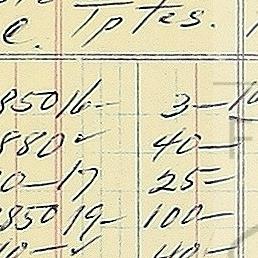 C. Tptes.
850 16- 3-10
880 ✓ 40-
0-17 25-
850 19- 100-
40-